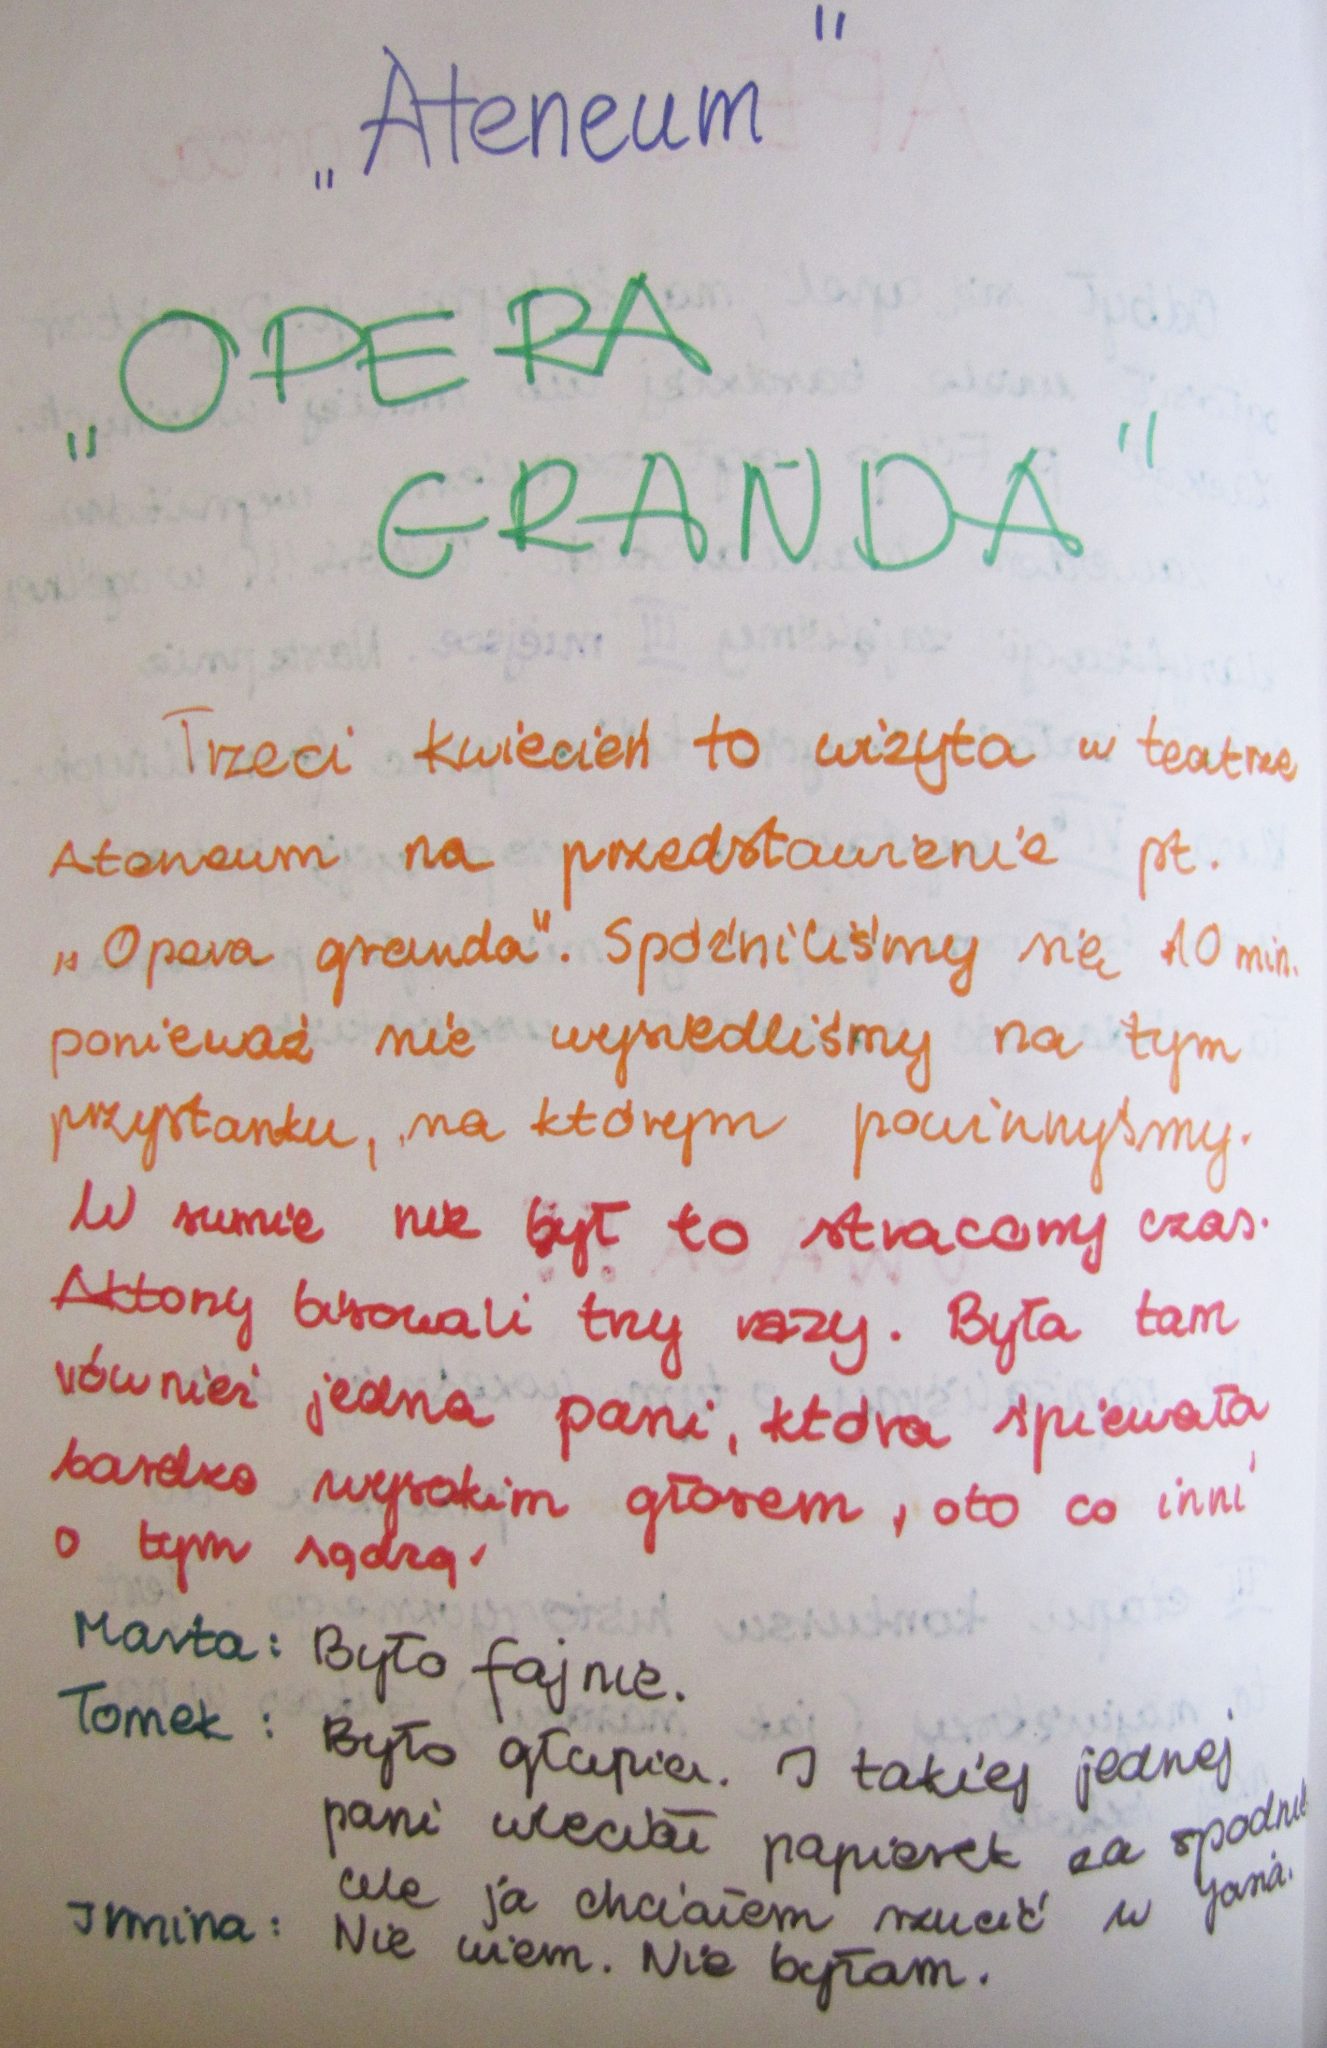 „Ateneum"
„OPERA
GRANDA"
Trzeci kwiecień to wizyta w teatrze
Ateneum na przedstawienie pt.
„Opera granda". Spóźniliśmy się 10 min.
ponieważ nie wysiedliśmy na tym
przystanku, na którym powinnyśmy.
W sumie nie był to stracony czas.
Aktorzy bisowali trzy razy. Była tam
również jedna pani, która śpiewała
bardzo wysokim głosem, oto co inni
o tym sądzą.
Marta: Było fajnie.
Tomek: Było głupio. I takiej jednej
pani wleciał papierek za spodnie
ale ja chciałem rzucić w Jasia.
Irmina: Nie wiem. Nie byłam.